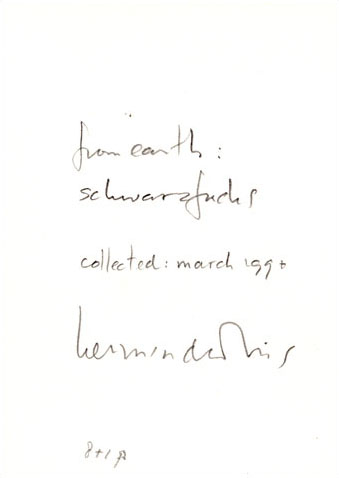 from earth:
schwarzfuchs
collected: march
herman de vries